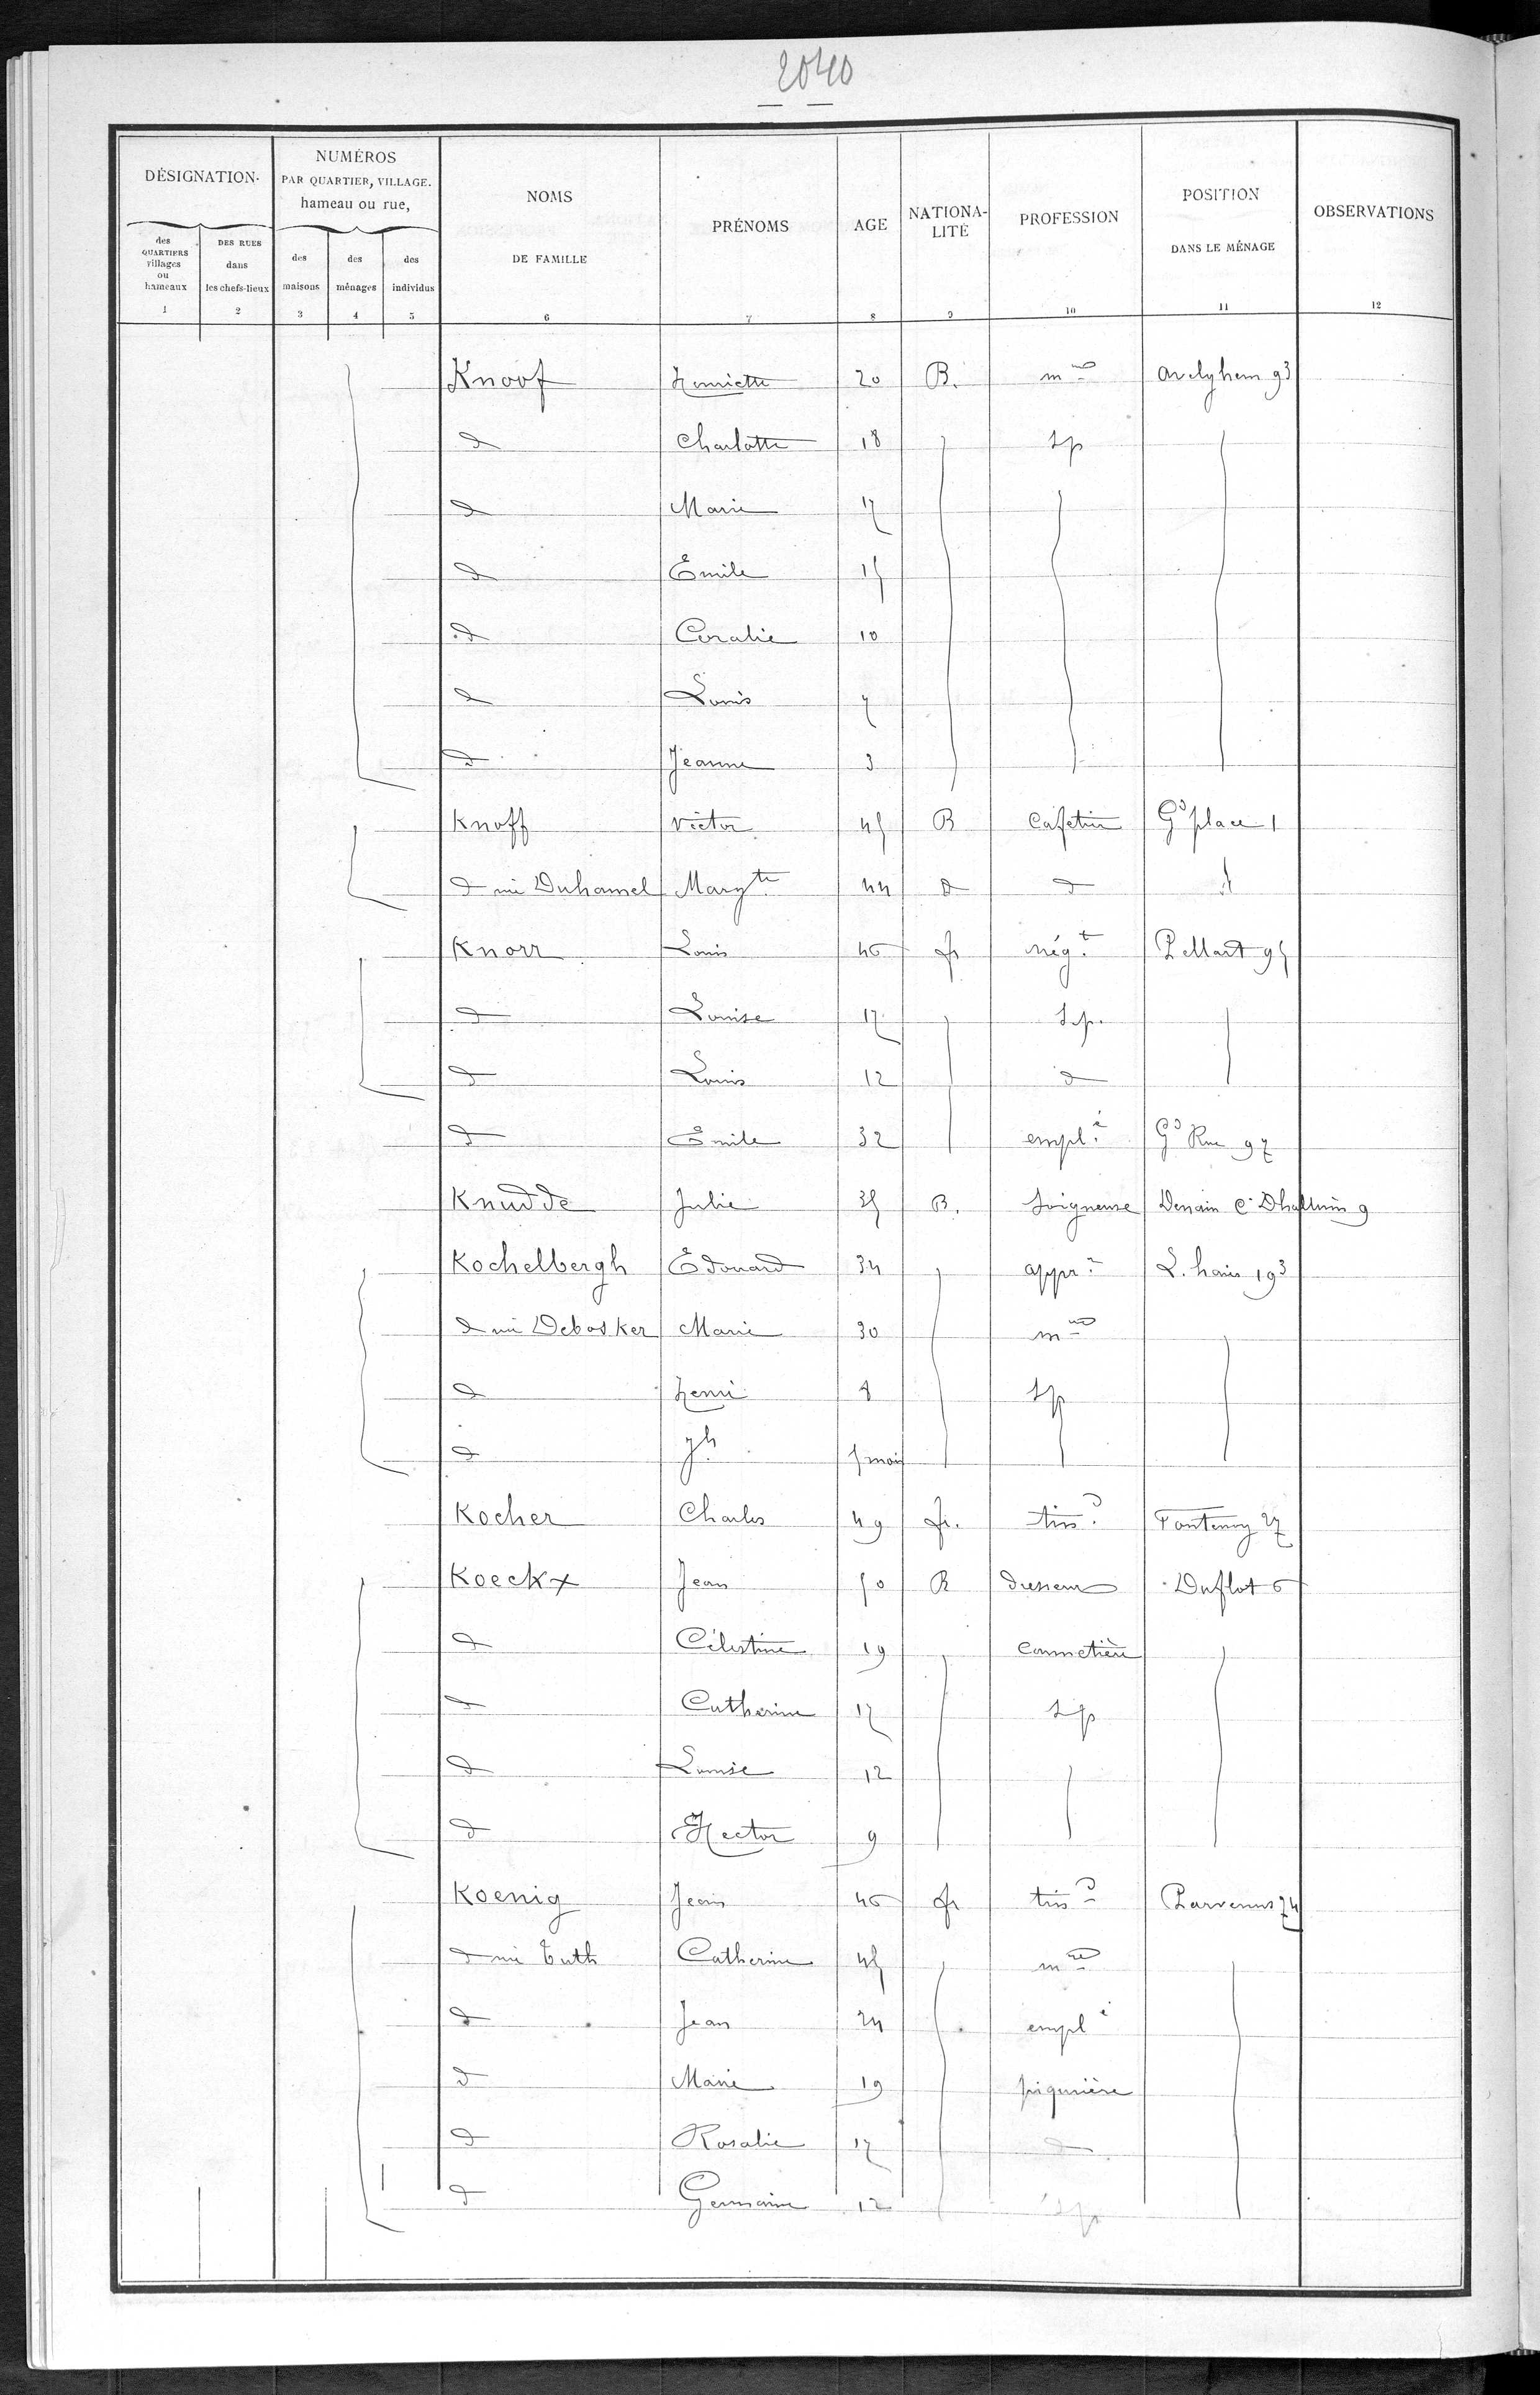 2040
DÉSIGNATION. NUMÉROS PAR QUARTIER, VILLAGE. hameau ou rue, NOMS DE FAMILLE PRÉNOMS AGE NATIONALITÉ PROFESSION POSITION DANS LE MÉNAGE OBSERVATIONS
des QUARTIERS villages ou hameaux DES RUES dans les chefs-lieux des maisons des ménages des individus
1 2 3 4 5 6 7 8 9 10 11 12
Knoof Henriette 20 B. m Avelghem 93
d Charlotte 18 sp
d Marie 17
d Emile 15
d Coralie 10
d Louis 7
d Jeanne 3
Knoff Victor 45 B Cafetier Gd place 1
d née Duhamel Margte 44 d d d
Knorr Louis 46 fr négt Pellart 95
d Louise 17 s.p.
d Louis 12 d
d Emile 32 emplé Gd Rue 97
Knudde Julie 35 B. Soigneuse Denain C. Dhalluin 9
Kochelbergh Edouard 34 appr L. haies 193
d née Debosker Marie 30 m
d Henri 8 sp
d Jh 5 mois
Kocher Charles 49 fr. tissd Fontenoy 27
Koeckx Jean 50 B dresseur Duflot 6
d Célestine 19 cannetière
d Catherine 17 sp
d Louise 12
d Hector 9
Koenig Jean 46 fr tissd Parvenus 74
d née Tuth Catherine 45 m
d Jean 24 emplé
d Marie 19 piqurière
d Rosalie 17 d
d Germaine 12 sp